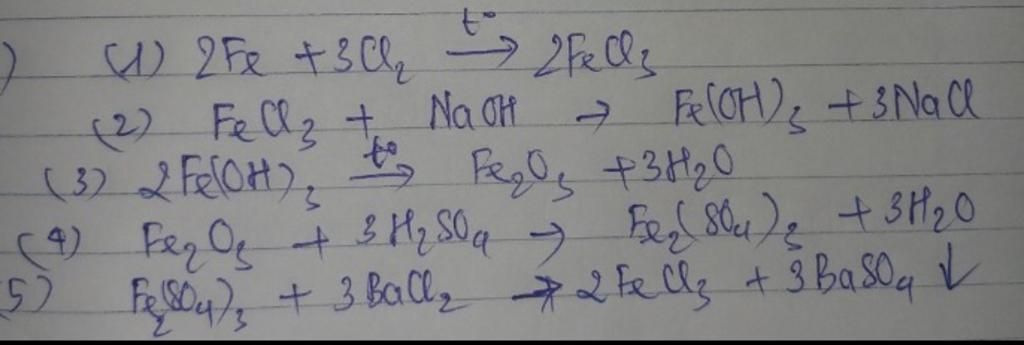 ) (1) 2Fe + 3Cl₂ —t°→ 2FeCl₃
(2) FeCl₃ + NaOH → Fe(OH)₃ + 3NaCl
(3) 2Fe(OH)₃ —t°→ Fe₂O₃ + 3H₂O
(4) Fe₂O₃ + 3H₂SO₄ → Fe₂(SO₄)₃ + 3H₂O
5) Fe₂(SO₄)₃ + 3BaCl₂ → 2FeCl₃ + 3BaSO₄ ↓